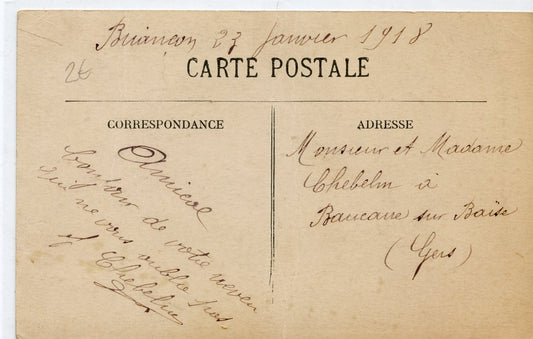 Briançon 23 Janvier 1918
2€
CARTE POSTALE
CORRESPONDANCE
Amical
bonjour de votre neveu
qui ne vous oublie pas,
et Chebelm
ADRESSE
Monsieur et Madame
Chebelm à
Baucaire sur Baïse
(Gers)